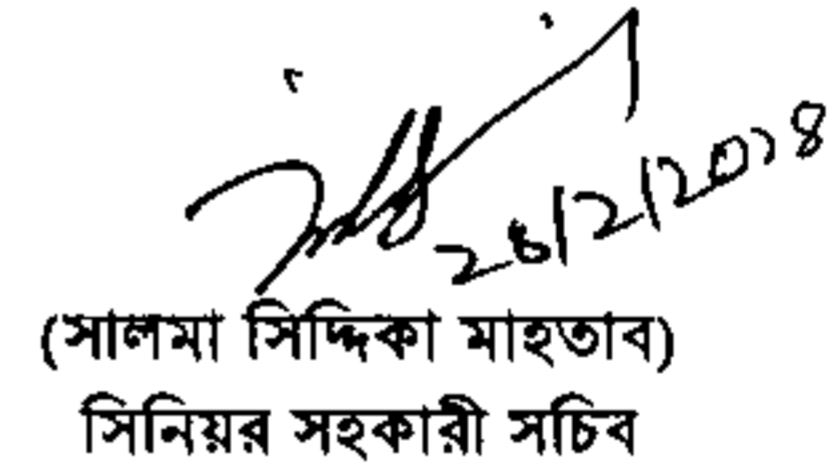 28/2/2018
(সালমা সিদ্দিকা মাহতাব)
সিনিয়র সহকারী সচিব